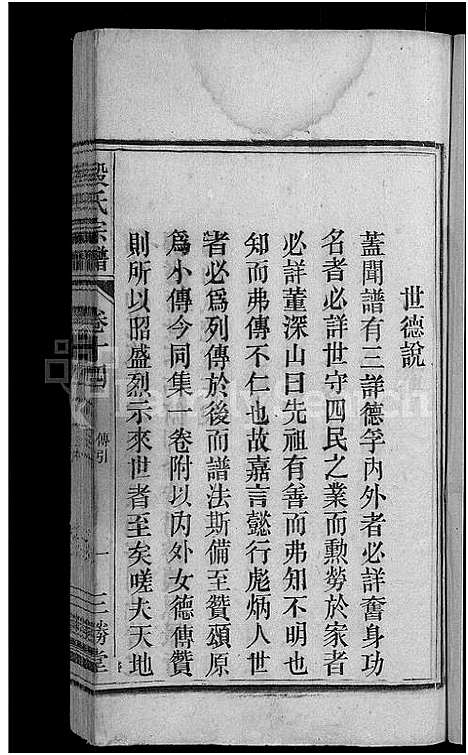 世德說
蓋聞譜有三詳德孚內外者必詳奮身功
名者必詳世守四民之業而勲勞於家者
必詳董深山曰先祖有善而弗知不明也
知而弗傳不仁也故嘉言懿行彪炳人世
者必爲列傳於後而譜法斯備至贊頌原
爲小傳今同集一卷附以內外女德傳贊
則所以昭盛烈示來世者至矣嗟夫天地
段氏宗譜
卷十四
傳引
一
三勝堂
FamilySearch